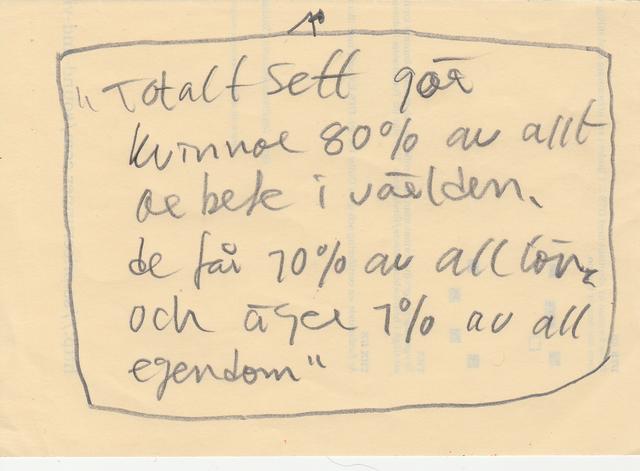 "Totalt sett gör
kvinnor 80% av allt
arbete i världen.
de får 10% av all lön.
och äger 1% av all
egendom"